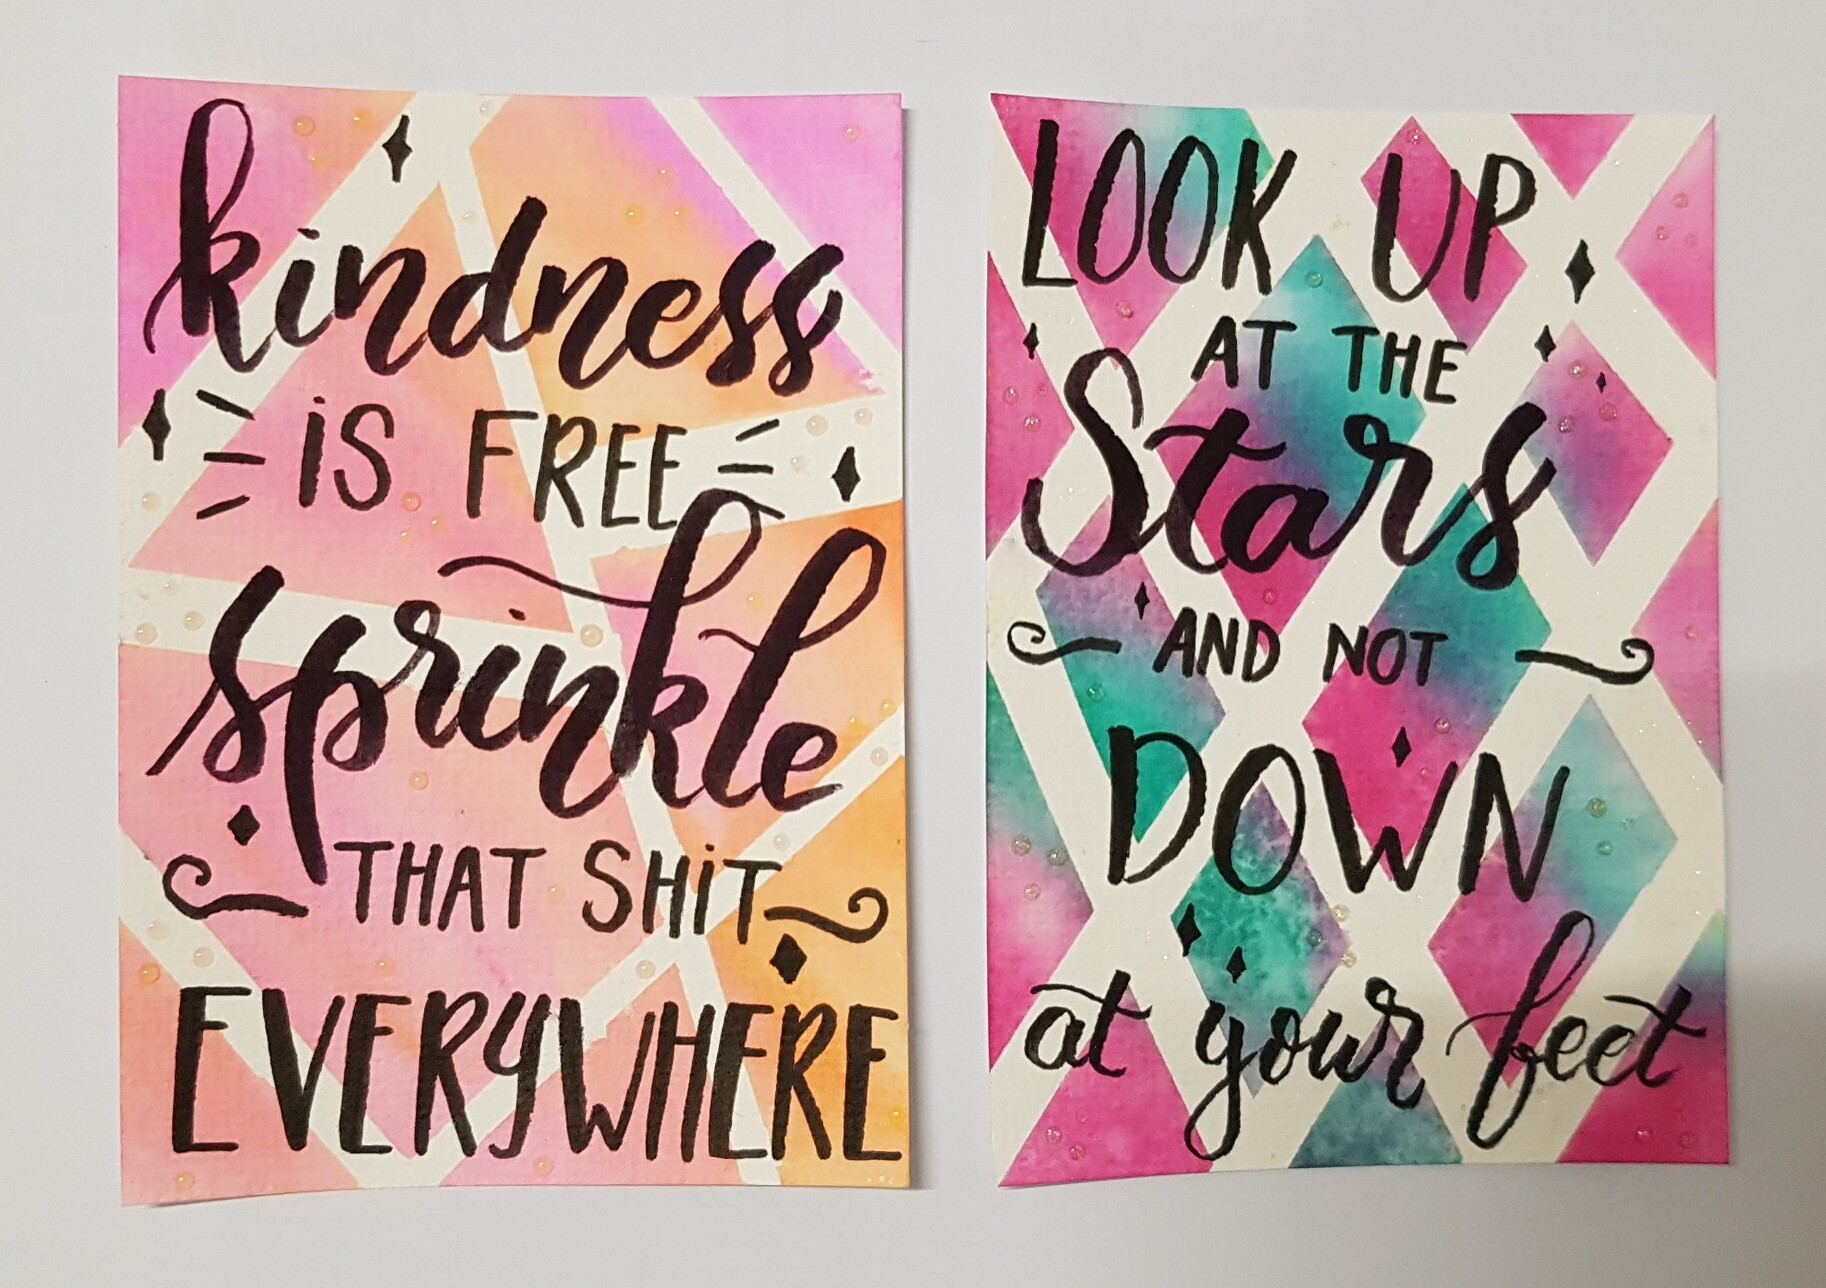 kindness
iS FREE
sprinkle
THAT SHiT
EVERYWHERE
LOOK UP
AT THE
Stars
AND NOT
DOWN
at your feet